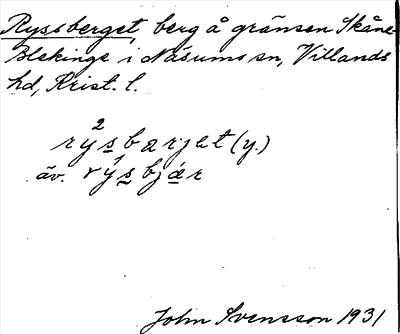 Ryssberget, berg å gränsen Skåne-
Blekinge i Näsums sn, Villands
hd, Krist. l.
2
rýsbarjet (y.)
äv. rýsbjær
John Svensson 1931